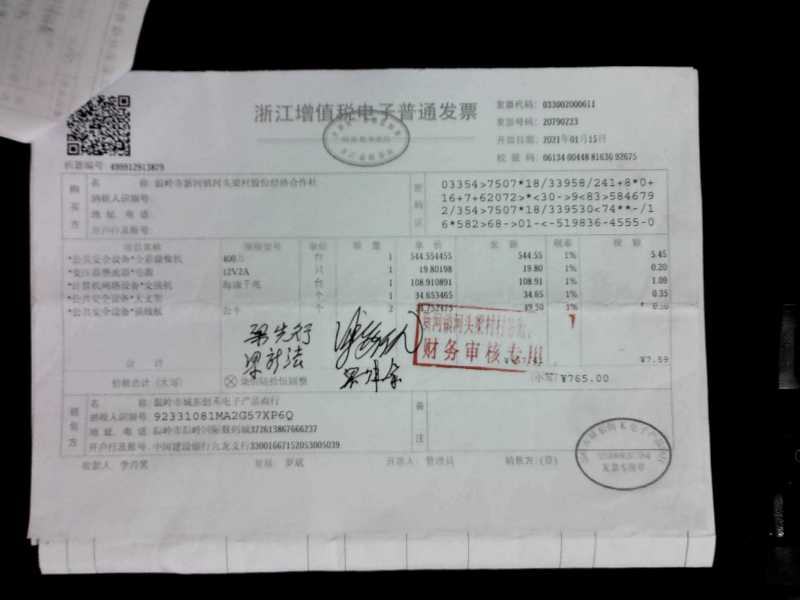 浙江增值税电子普通发票
发票代码: 033002000611
发票号码: 20790223
开票日期: 2021年01月15日
校 验 码: 06134 00448 81630 92675
机器编号: 499912913879
购买方
名 称: 温岭市新河镇河头梁村股份经济合作社
纳税人识别号:
地 址、电 话:
开户行及账号:
密码区
03354>7507*18/33958/241+8*0+
16+7+62072>*<30->9<83>584679
2/354>7507*18/339530<74**-/16
*582>68->01-<-519836-4555-0
项目名称 规格型号 单位 数 量 单 价 金 额 税率 税 额
*公共安全设备*全彩摄像机 400万 台 1 544.554455 544.55 1% 5.45
*变压器整流器*电源 12V2A 只 1 19.80198 19.80 1% 0.20
*计算机网络设备*交换机 台 1 108.910891 108.91 1% 1.09
*公共安全设备*大支架 个 1 34.653465 34.65 1% 0.35
个 2 49.50 1%
¥7.59
财务审核专用
价税合计(大写) (小写) ¥765.00
销售方
名 称: 温岭市城东创禾电子产品商行
纳税人识别号: 92331081MA2G57XP6Q
地 址、电 话: 温岭市温岭国际数码城372613867666237
开户行及账号: 中国建设银行九龙支行33001667152053005039
备注
收款人: 复核: 罗斌 开票人: 管理员 销售方:(章)
发票专用章